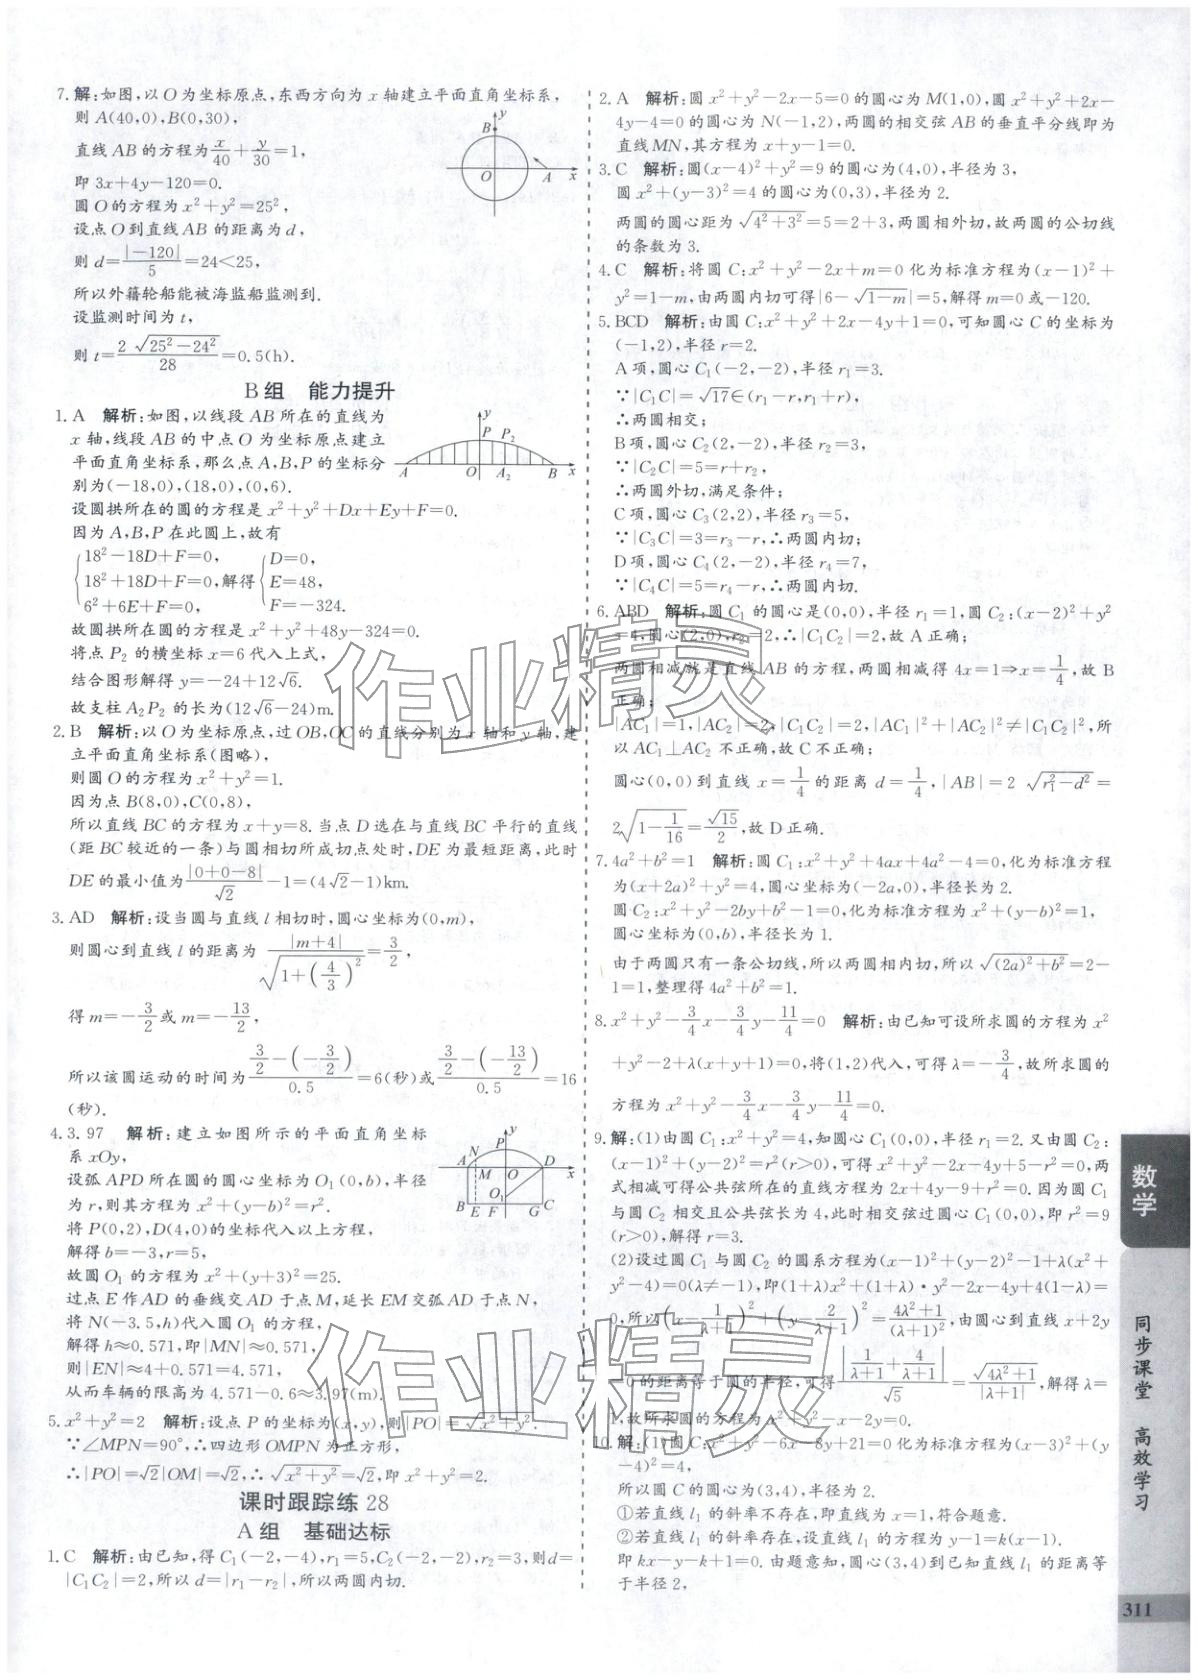 7. 解:如图,以 O 为坐标原点,东西方向为 x 轴建立平面直角坐标系,
则 A(40,0),B(0,30),
直线 AB 的方程为 x/40+y/30=1,
即 3x+4y−120=0.
圆 O 的方程为 x²+y²=25²,
设点 O 到直线 AB 的距离为 d,
则 d=|−120|/5=24<25,
所以外籍轮船能被海监船监测到.
设监测时间为 t,
则 t=2√(25²−24²)/28=0.5(h).
y
B
O
A
x
B组 能力提升
1. A 解析:如图,以线段 AB 所在的直线为
x 轴,线段 AB 的中点 O 为坐标原点建立
平面直角坐标系,那么点 A,B,P 的坐标分
别为(−18,0),(18,0),(0,6).
y
P P₂
A O A₂ B x
设圆拱所在的圆的方程是 x²+y²+Dx+Ey+F=0.
因为 A,B,P 在此圆上,故有
{18²−18D+F=0, 18²+18D+F=0, 6²+6E+F=0, 解得 {D=0, E=48, F=−324.
故圆拱所在圆的方程是 x²+y²+48y−324=0.
将点 P₂ 的横坐标 x=6 代入上式,
结合图形解得 y=−24+12√6.
故支柱 A₂P₂ 的长为(12√6−24)m.
2. B 解析:以 O 为坐标原点,过 OB,OC 的直线分别为 x 轴和 y 轴,建
立平面直角坐标系(图略),
则圆 O 的方程为 x²+y²=1.
因为点 B(8,0),C(0,8),
所以直线 BC 的方程为 x+y=8. 当点 D 选在与直线 BC 平行的直线
(距 BC 较近的一条)与圆相切所成切点处时,DE 为最短距离,此时
DE 的最小值为 |0+0−8|/√2−1=(4√2−1)km.
3. AD 解析:设当圆与直线 l 相切时,圆心坐标为(0,m),
则圆心到直线 l 的距离为 |m+4|/√(1+(4/3)²)=3/2,
得 m=−3/2 或 m=−13/2,
所以该圆运动的时间为 (3/2−(−3/2))/0.5=6(秒)或 (3/2−(−13/2))/0.5=16
(秒).
4. 3.97 解析:建立如图所示的平面直角坐标
系 xOy,
设弧 APD 所在圆的圆心坐标为 O₁(0,b),半径
为 r,则其方程为 x²+(y−b)²=r².
将 P(0,2),D(4,0)的坐标代入以上方程,
解得 b=−3,r=5,
故圆 O₁ 的方程为 x²+(y+3)²=25.
过点 E 作 AD 的垂线交 AD 于点 M,延长 EM 交弧 AD 于点 N,
将 N(−3.5,h)代入圆 O₁ 的方程,
解得 h≈0.571,即|MN|≈0.571,
则|EN|≈4+0.571=4.571,
从而车辆的限高为 4.571−0.6≈3.97(m).
y
N P
A M O D x
O₁
B E F G C
5. x²+y²=2 解析:设点 P 的坐标为(x,y),则|PO|=√(x²+y²).
∵∠MPN=90°,∴四边形 OMPN 为正方形,
∴|PO|=√2|OM|=√2,∴√(x²+y²)=√2,即 x²+y²=2.
课时跟踪练 28
A组 基础达标
1. C 解析:由已知,得 C₁(−2,−4),r₁=5,C₂(−2,−2),r₂=3,则 d=
|C₁C₂|=2,所以 d=|r₁−r₂|,所以两圆内切.
2. A 解析:圆 x²+y²−2x−5=0 的圆心为 M(1,0),圆 x²+y²+2x−
4y−4=0 的圆心为 N(−1,2),两圆的相交弦 AB 的垂直平分线即为
直线 MN,其方程为 x+y−1=0.
3. C 解析:圆(x−4)²+y²=9 的圆心为(4,0),半径为 3,
圆 x²+(y−3)²=4 的圆心为(0,3),半径为 2.
两圆的圆心距为 √(4²+3²)=5=2+3,两圆相外切,故两圆的公切线
的条数为 3.
4. C 解析:将圆 C:x²+y²−2x+m=0 化为标准方程为(x−1)²+
y²=1−m,由两圆内切可得|6−√(1−m)|=5,解得 m=0 或−120.
5. BCD 解析:由圆 C:x²+y²+2x−4y+1=0,可知圆心 C 的坐标为
(−1,2),半径 r=2.
A 项,圆心 C₁(−2,−2),半径 r₁=3.
∵|C₁C|=√17∈(r₁−r,r₁+r),
∴两圆相交;
B 项,圆心 C₂(2,−2),半径 r₂=3,
∵|C₂C|=5=r+r₂,
∴两圆外切,满足条件;
C 项,圆心 C₃(2,2),半径 r₃=5,
∵|C₃C|=3=r₃−r,∴两圆内切;
D 项,圆心 C₄(2,−2),半径 r₄=7,
∵|C₄C|=5=r₄−r,∴两圆内切.
6. ABD 解析:圆 C₁ 的圆心是(0,0),半径 r₁=1,圆 C₂:(x−2)²+y²
=4,圆心(2,0),r₂=2,∴|C₁C₂|=2,故 A 正确;
两圆相减就是直线 AB 的方程,两圆相减得 4x=1⇒x=1/4,故 B
正确;
|AC₁|=1,|AC₂|=2,|C₁C₂|=2,|AC₁|²+|AC₂|²≠|C₁C₂|²,所
以 AC₁⊥AC₂ 不正确,故 C 不正确;
圆心(0,0)到直线 x=1/4 的距离 d=1/4,|AB|=2√(r₁²−d²)=
2√(1−1/16)=√15/2,故 D 正确.
7. 4a²+b²=1 解析:圆 C₁:x²+y²+4ax+4a²−4=0,化为标准方程
为(x+2a)²+y²=4,圆心坐标为(−2a,0),半径长为 2.
圆 C₂:x²+y²−2by+b²−1=0,化为标准方程为 x²+(y−b)²=1,
圆心坐标为(0,b),半径长为 1.
由于两圆只有一条公切线,所以两圆相内切,所以 √((2a)²+b²)=2−
1=1,整理得 4a²+b²=1.
8. x²+y²−3/4x−3/4y−11/4=0 解析:由已知可设所求圆的方程为 x²
+y²−2+λ(x+y+1)=0,将(1,2)代入,可得 λ=−3/4,故所求圆的
方程为 x²+y²−3/4x−3/4y−11/4=0.
9. 解:(1)由圆 C₁:x²+y²=4,知圆心 C₁(0,0),半径 r₁=2. 又由圆 C₂:
(x−1)²+(y−2)²=r²(r>0),可得 x²+y²−2x−4y+5−r²=0,两
式相减可得公共弦所在的直线方程为 2x+4y−9+r²=0. 因为圆 C₁
与圆 C₂ 相交且公共弦长为 4,此时相交弦过圆心 C₁(0,0),即 r²=9
(r>0),解得 r=3.
(2)设过圆 C₁ 与圆 C₂ 的圆系方程为(x−1)²+(y−2)²−1+λ(x²+
y²−4)=0(λ≠−1),即(1+λ)x²+(1+λ)·y²−2x−4y+4(1−λ)=
0,所以(x−1/(λ+1))²+(y−2/(λ+1))²=(4λ²+1)/(λ+1)²,由圆心到直线 x+2y
=0 的距离等于圆的半径,可得 |1/(λ+1)+4/(λ+1)|/√5=√(4λ²+1)/|λ+1|,解得 λ=
1,故所求圆的方程为 x²+y²−x−2y=0.
10. 解:(1)圆 C:x²+y²−6x−8y+21=0 化为标准方程为(x−3)²+(y
−4)²=4,
所以圆 C 的圆心为(3,4),半径为 2.
①若直线 l₁ 的斜率不存在,即直线为 x=1,符合题意.
②若直线 l₁ 的斜率存在,设直线 l₁ 的方程为 y−1=k(x−1).
即 kx−y−k+1=0. 由题意知,圆心(3,4)到已知直线 l₁ 的距离等
于半径 2,
数学
同步课堂 高效学习
311
作业精灵
作业精灵